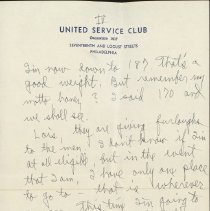 IV
UNITED SERVICE CLUB
ORGANIZED 1917
SEVENTEENTH AND LOCUST STREETS
PHILADELPHIA
I'm now down to 187 that's a
good weight. But remember my
motto honey? I said 170 and
we shall see.
Lois, they are giving furloughs
to the men. I don't know if I'm
at all eligible but in the event
that I am, I have only one place
to go to - that is wherever
This time I'm going to